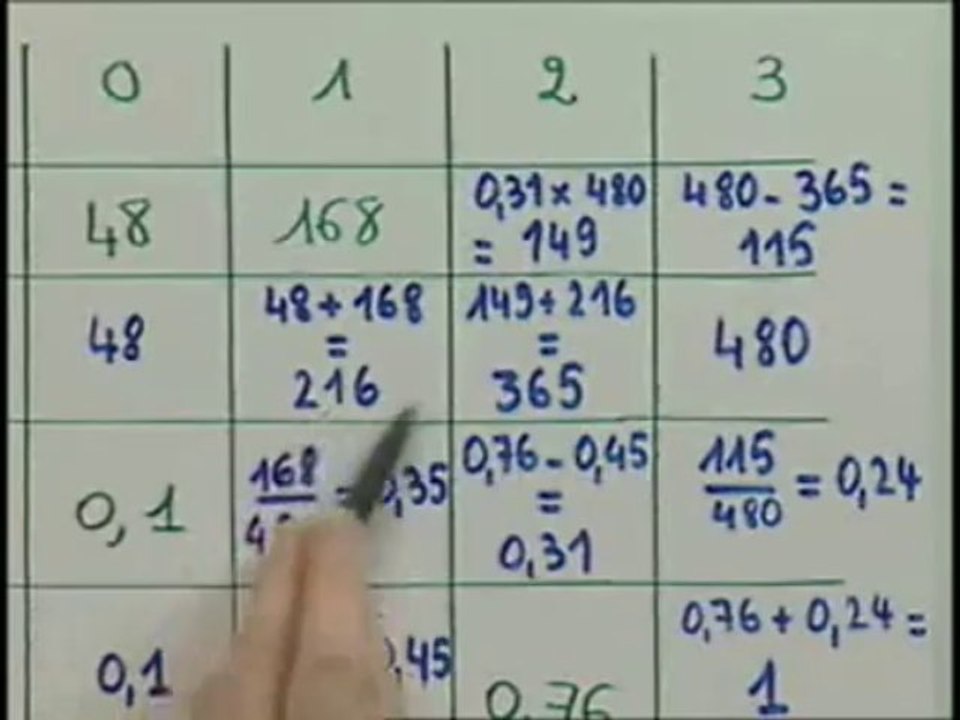 0 1 2 3
48 168 0,31 x 480 = 149 480 - 365 = 115
48 48 + 168 = 216 149 + 216 = 365 480
0,1 168 = 0,35 0,76 - 0,45 = 0,31 115/480 = 0,24
0,1 ,45 0,76 0,76 + 0,24 = 1